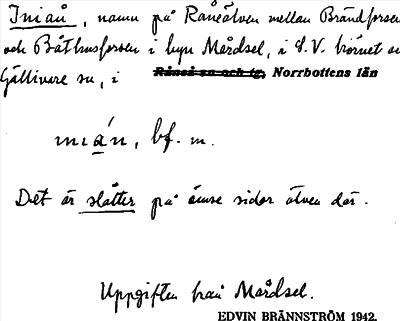 Iniån, namn på Råneälven mellan Brändforsen
och Båthusforsen i byn Mårdsel, i S.V. hörnet av
Gällivare sn, i Råneå sn och tg, Norrbottens län
inıa̱´n, bf. m.
Det är slåtter på ömse sidor älven där.
Uppgiften från Mårdsel.
EDVIN BRÄNNSTRÖM 1942.